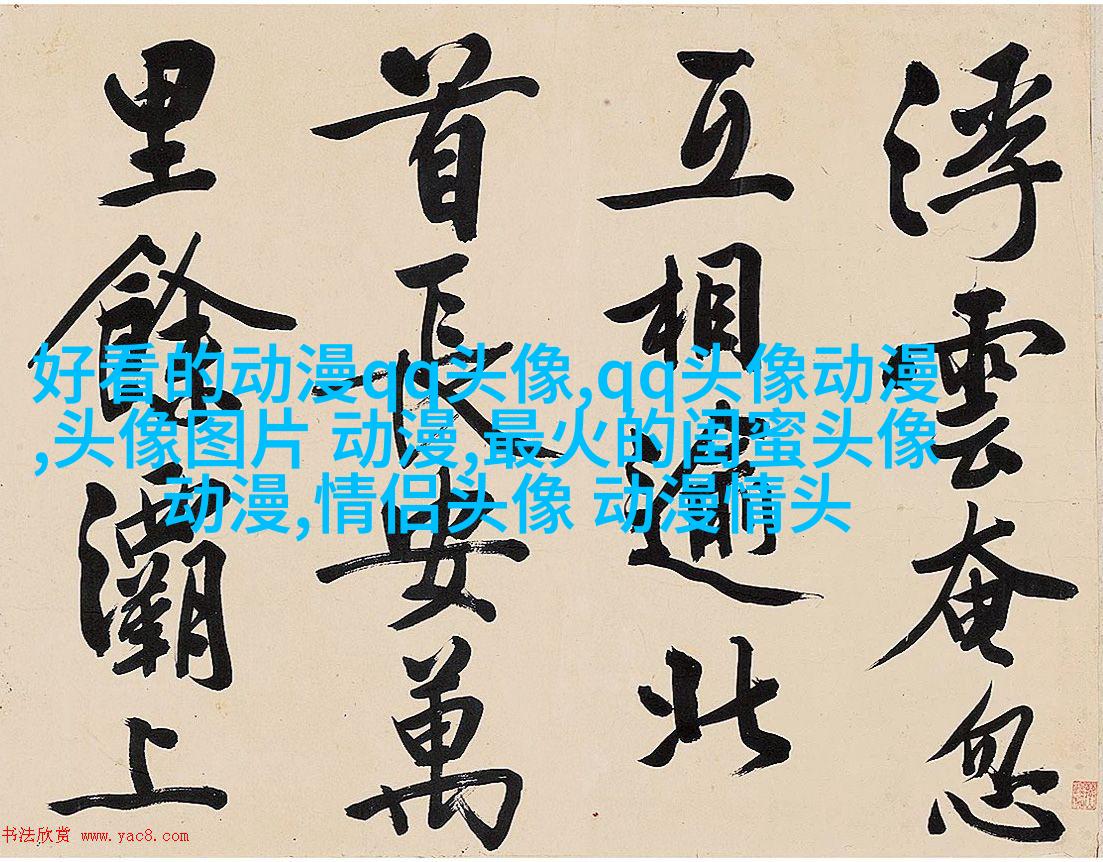 浮雲奄忽
互相逾北
首長安萬
里餘灞上
好看的动漫qq头像,qq头像动漫
,头像图片 动漫,最火的闺蜜头像
动漫,情侣头像 动漫情头
书法欣赏 www.yac8.com